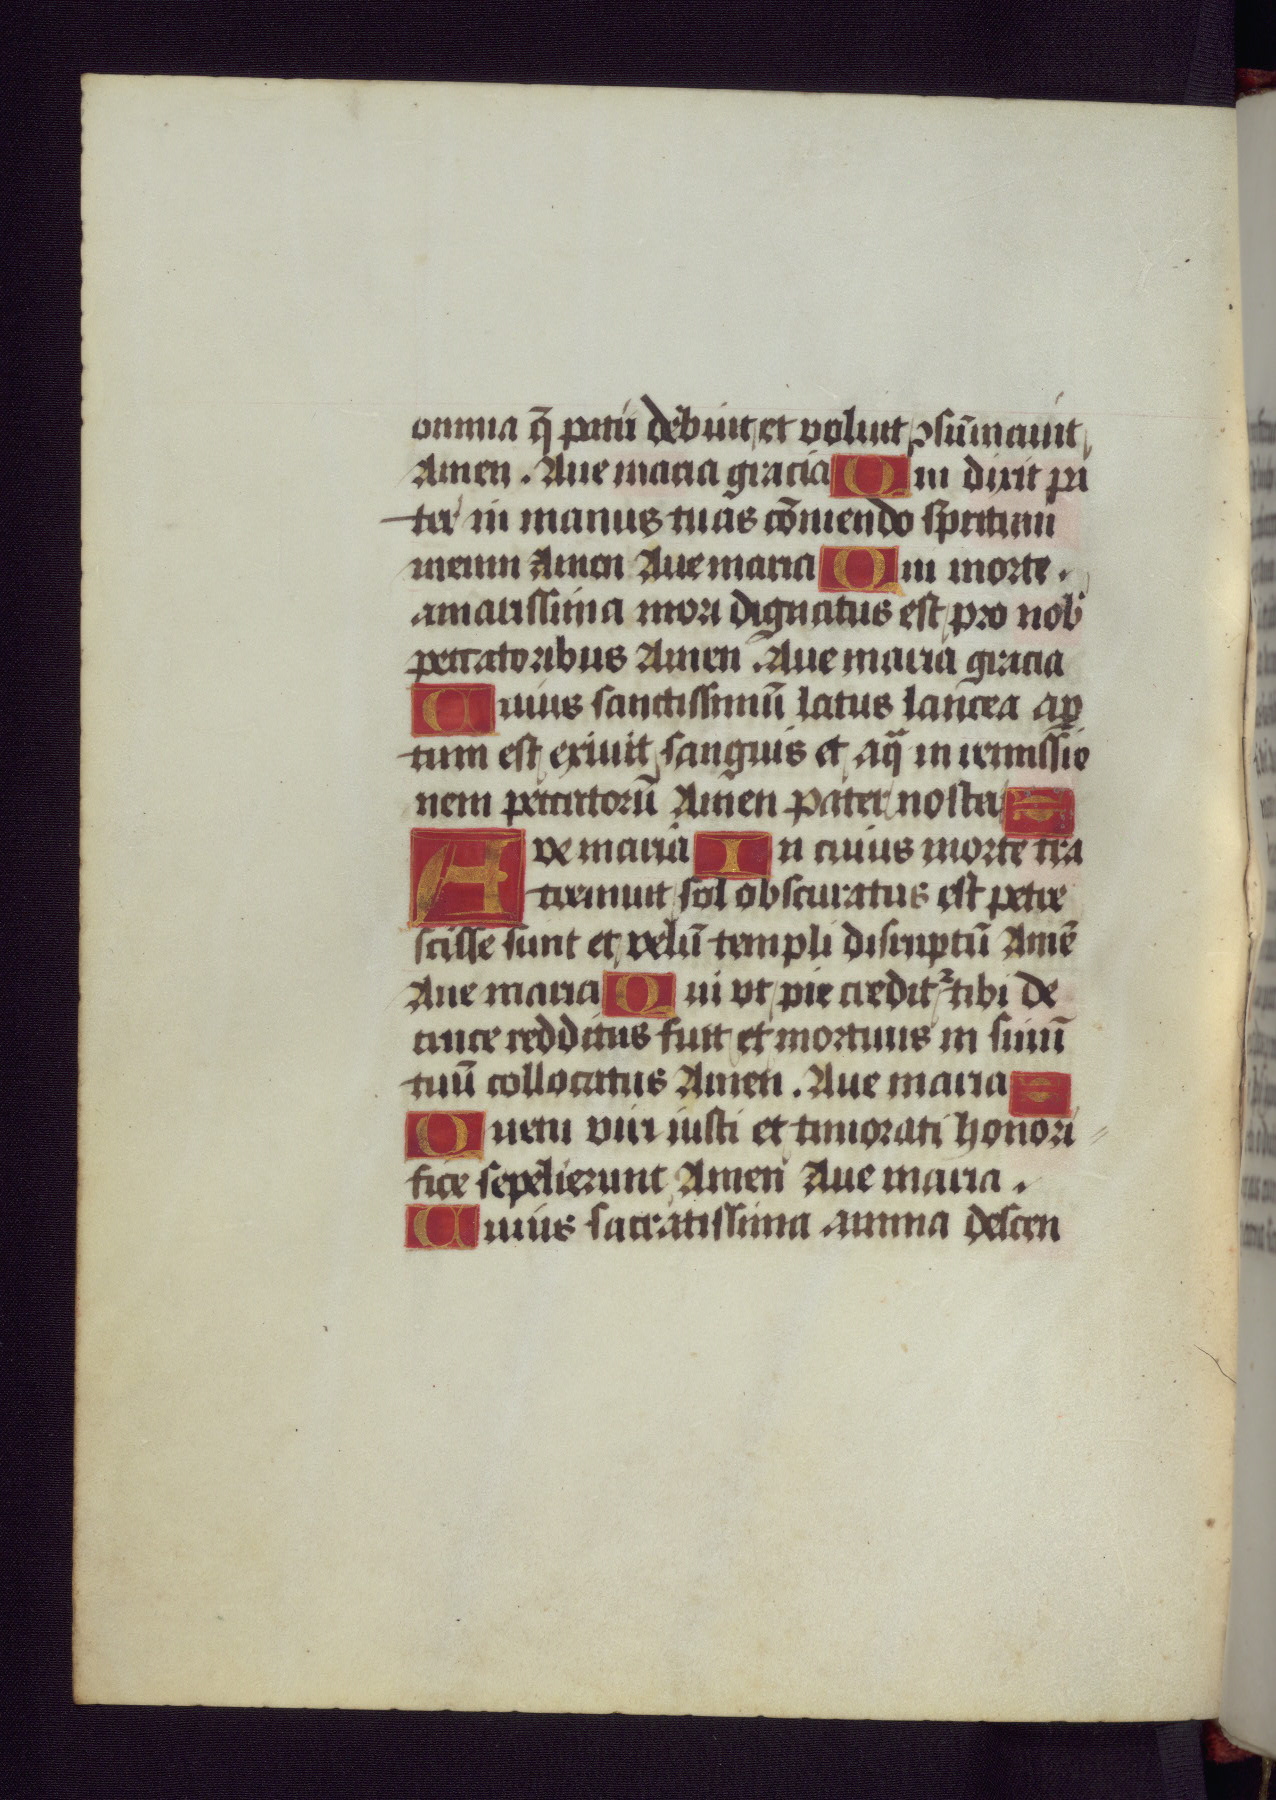 omnia q̄ pati debuit et voluit ꝯsūmauit
Amen . Aue maria gracia Qui dixit pa
ter in manus tuas cōmendo sp̄ritum
meum Amen Aue maria Qui morte .
amarissima mori dignatus est pro nob̄
peccatoribus Amen . Aue maria gracia
Cuius sanctissimū latus lancea aꝑ
tum est exiuit sanguis et aq̄ in remissio
nem peccatorū Amen Pater noster
Aue maria In cuius morte tra
tremuit sol obscuratus est petre
scisse sunt et velū templi disruptū Amē
Aue maria Qui vt pie credit᷑ tibi de
cruce redditus fuit et mortuus in sinū
tuū collocatus Amen . Aue maria
Quem viri iusti et timorati honori
fice sepelierunt Amen Aue maria .
Cuius sacratissima anima descen